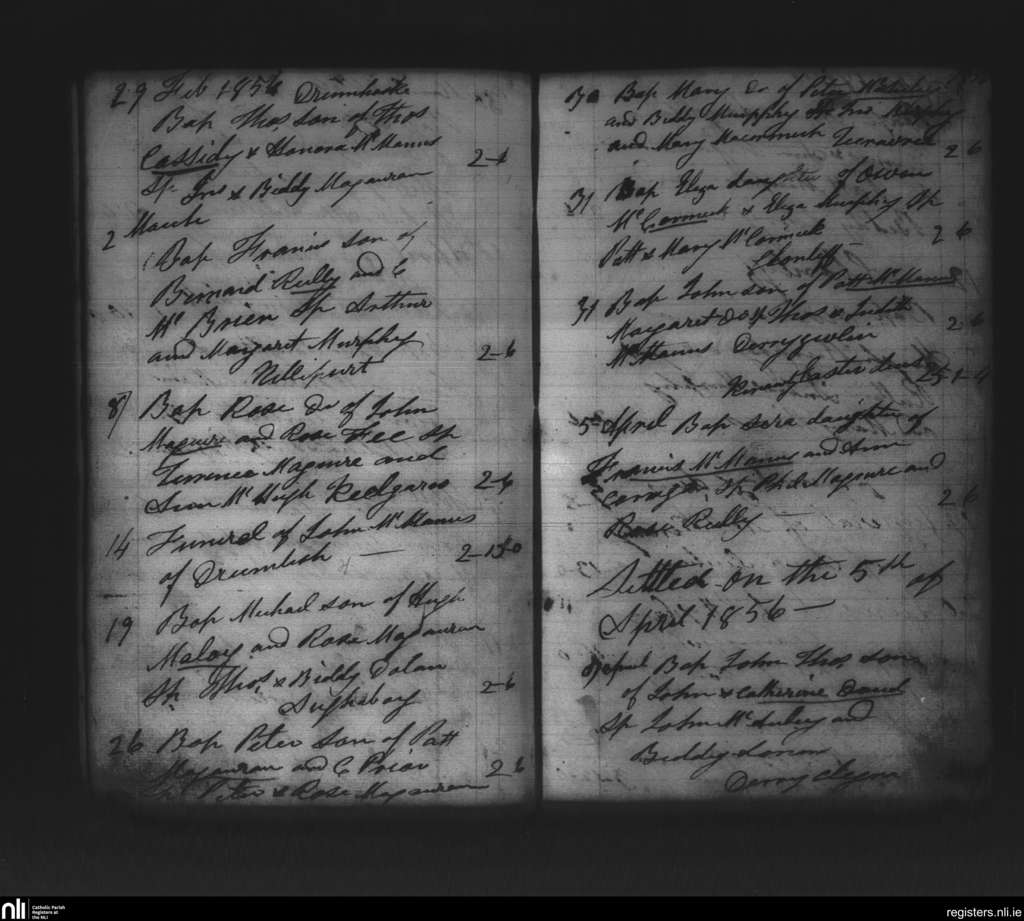 29 Feb 1856 Drumharke
Bap Thos, son of Thos
Cassidy & Hanora McManus
Sp Jno & Biddy Magauran 2-1
2 March
Bap Francis son of
Bernard Reilly and C
McBrien Sp Arthur
and Margaret Murphy 2-6
8 Bap Rose dr of John
Maguire and Rose Fee Sp
Terence Maguire and
McHugh 2-6
14 Funeral of John McManus
of Drumlish — 2-15-0
19 Bap Michael son of Hugh
Maloy and Rose Magauran
Sp Thos, & Biddy Dolan 2-6
26 Bap Peter son of Patt
Magauran and C Prior 2 6
Sp Peter & Rose Magauran
30 Bap Mary dr of Peter
and Biddy Murphy Sp Jno Murphy
and Mary Macormick 2 6
31 Bap Eliza daughter of Owen
McCormick & Eliza Murphy Sp
Patt & Mary McCormick 2 6
31 Bap John son of Patt McManus
Margaret Do Sp Thos & Judith 2 6
McManus Derrygwlin
Easter dues 25-1-4
5th April Bap Sera daughter of
Francis McManus and Ann
Sp Phil Maguire and 2 6
Rose Reilly —
Settled on the 5th of
April 1856 —
April Bap John Thos, son
of John & Catherine
Sp John and
Biddy